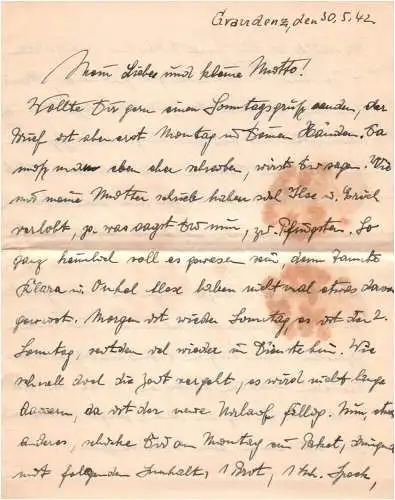 Graudenz, den 30.5.42
Mein Lieber und kleine Mutto!
Wollte Dir gern einen Sonntagsgruß senden, der
Brief ist aber erst Montag in Deinen Händen. Da
muß man eben eher schreiben, wirst Du sagen. Wie
mir meine Mutter schrieb haben sich Ilse u. Erich
verlobt, ja was sagst Du nun, zu Pfingsten. So
ganz heimlich soll es gewesen sein, denn Tante
Klara u. Onkel Max haben nicht mal etwas davon
gewusst. Morgen ist wieder Sonntag, es ist der 2.
Sonntag, seitdem ich wieder im Dienste bin. Wie
schnell doch die Zeit vergeht, es wird nicht lange
dauern, da ist der neue Urlaub fällig. Nun, etwas
anderes, schicke Dir am Montag ein Paket,
mit folgenden Inhalt, 1 Brot, 1 Speck,